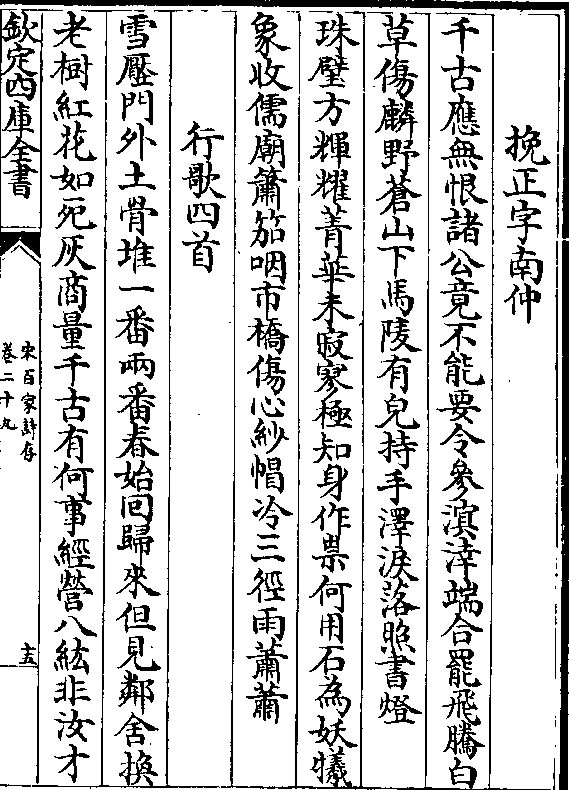 挽正字南仲
千古應無恨諸公竟不能要令參溟涬端合罷飛騰白
草傷麟野蒼山下馬陵有兒持手澤淚落照書燈
珠璧方輝耀菁華未寂寥極知身作祟何用石為妖犧
象收儒廟簫笳咽市橋傷心紗帽冷三徑雨蕭蕭
行歌四首
雪壓門外土骨堆一番兩番春始回歸來但見鄰舍換
老樹紅花如死灰商量千古有何事經營八紘非汝才
欽定四庫全書
宋百家詩存
卷二十九
十五